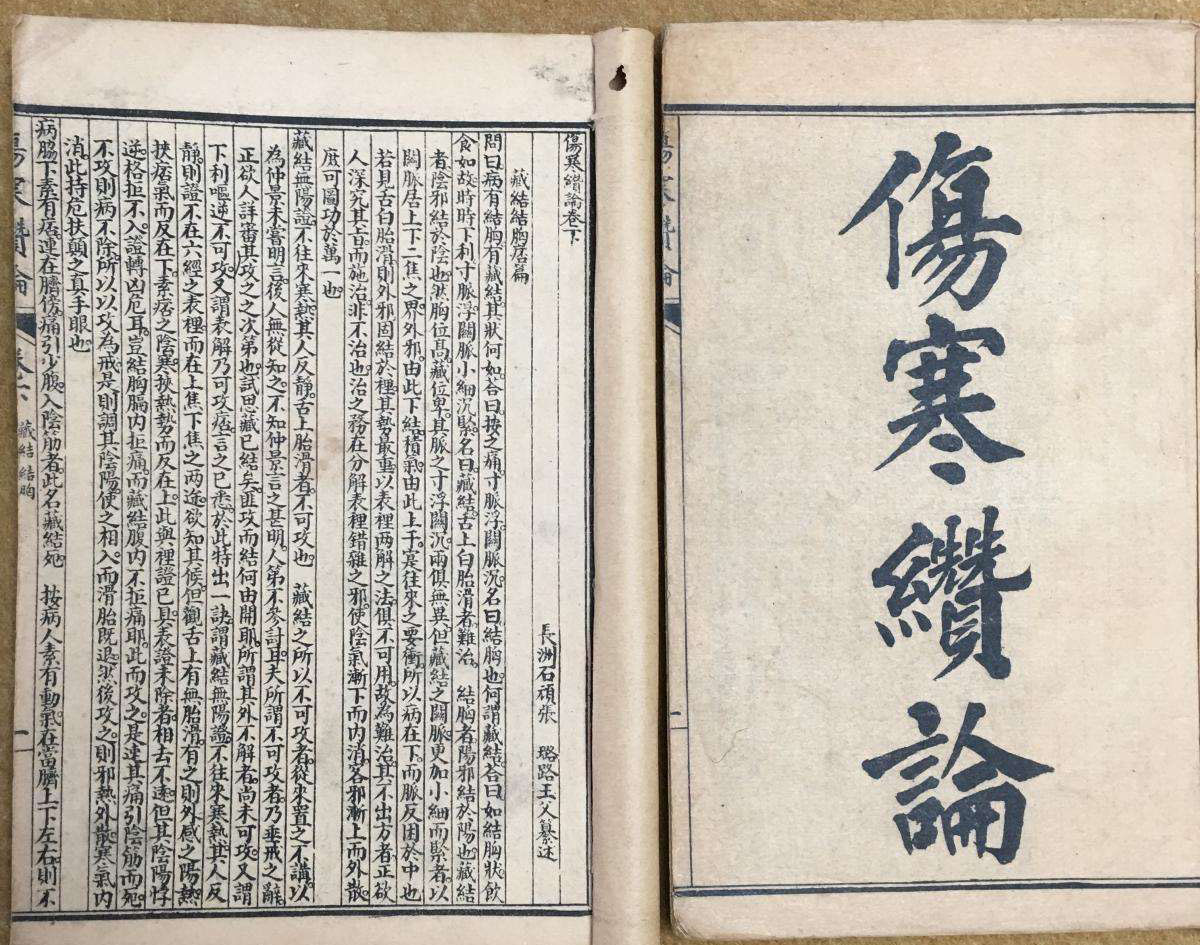 傷寒纘論
傷寒纘論卷下
長洲石頑張　璐路玉父纂述
藏結結胸痞篇
問曰病有結胸有藏結其狀何如荅曰按之痛寸脈浮關脈沉名曰結胸也何謂藏結荅曰如結胸狀飲
食如故時時下利寸脈浮關脈小細沉緊名曰藏結舌上白胎滑者難治　結胸者陽邪結於陽也藏結
者陰邪結於陰也然胸位高藏位卑其脈之寸浮關沉兩俱無異但藏結之關脈更加小細而緊者以
關脈居上下二焦之界外邪由此下結積氣由此上干實往來之要衝所以病在下而脈反困於中也
若見舌白胎滑則外邪固結於裡其勢最重以表裡兩解之法俱不可用故為難治其不出方者正欲
人深究其旨而施治非不治也治之務在分解表裡錯雜之邪使陰氣漸下而內消客邪漸上而外散
庶可圖功於萬一也
藏結無陽證不往來寒熱其人反靜舌上胎滑者不可攻也　藏結之所以不可攻者從來置之不講以
為仲景未嘗明言後人無從知之不知仲景言之甚明人第不參討耳夫所謂不可攻者乃垂戒之辭
正欲人詳審其攻之之次第也試思藏已結矣匪攻而結何由開耶所謂其外不解者尚未可攻又謂
下利嘔逆不可攻又謂表解乃可攻痞言之已悉於此特出一訣謂藏結無陽證不往來寒熱其人反
靜則證不在六經之表裡而在上焦下焦之兩途欲知其候但觀舌上有無胎滑有之則外感之陽熱
挾痞氣而反在下素痞之陰寒挾熱勢而反在上此與裡證已具表證未除者相去不遠但其陰陽悖
逆格拒不入證轉凶危耳豈結胸膈內拒痛而藏結腹內不拒痛耶此而攻之是速其痛引陰筋而死
不攻則病不除所以以攻為戒是則調其陰陽使之相入而滑胎既退然後攻之則邪熱外散寒氣內
消此持危扶顛之真手眼也
病脇下素有痞連在臍傍痛引少腹入陰筋者此名藏結死　按病人素有動氣在當臍上下左右則不
傷寒纘論
藏結 結胸
一